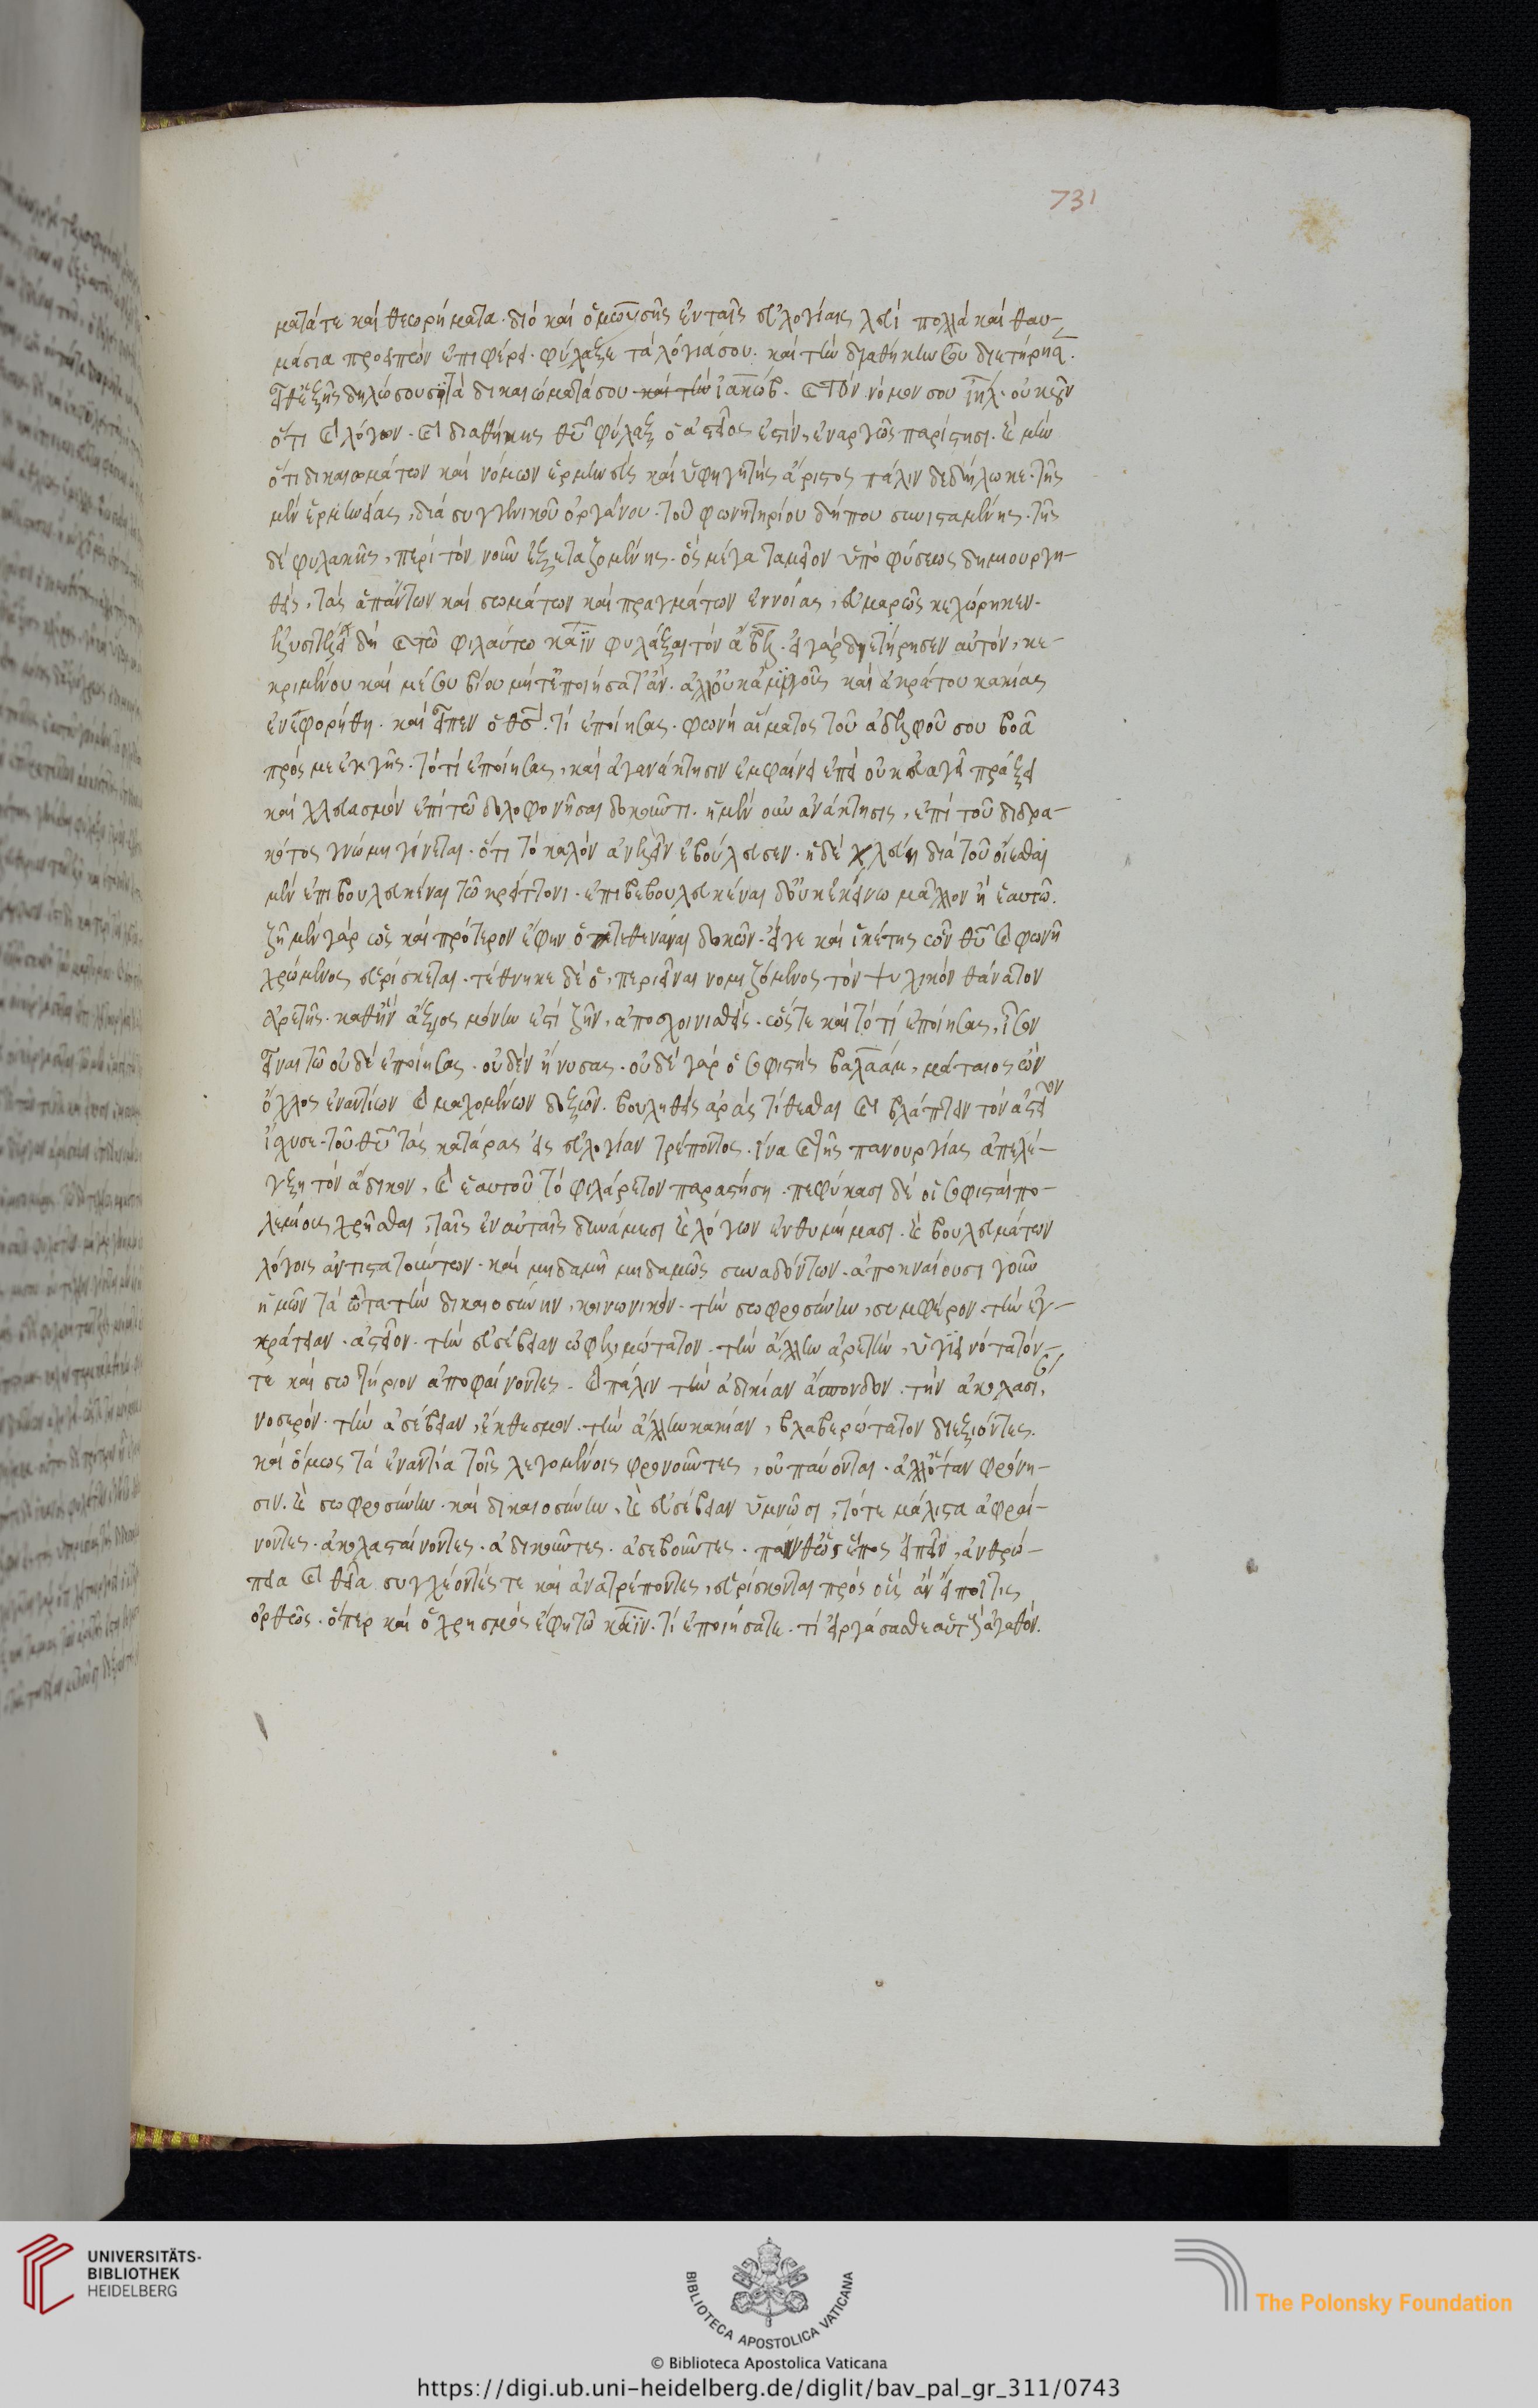 731
ματάτε καὶ θεωρήματα. διὸ καὶ ὁ μωυσῆς ἐν ταῖς εὐλογίαις λευὶ πολλὰ καὶ θαυ-
μάσια προειπὼν ἐπιφέρει. φύλαξε τὰ λόγιά σου. καὶ τὴν διαθήκην σου διετήρησε.
εἶθ' ἑξῆς δηλώσουσι τὰ δικαιώματά σου καὶ τὴν ἰακώβ. καὶ τὸν νόμον σου ἰηλ. οὐκοῦν
ὅτι καὶ λόγων. καὶ διαθήκης θεοῦ φύλαξ ὁ ἀστεῖος ἐστὶν, ἐναργῶς παρίστησι. καὶ μὴν
ὅτι δικαιωμάτων καὶ νόμων ἑρμηνεὺς καὶ ὑφηγητὴς ἄριστος πάλιν δεδήλωκε. τῆς
μὲν ἑρμηνείας, διὰ συγγενικοῦ ὀργάνου. τοῦ φωνητηρίου δήπου συνισταμένης. τῆς
δὲ φυλακῆς, περὶ τὸν νοῦν ἐξεταζομένης. ὃς μέγα ταμεῖον ὑπὸ φύσεως δημιουργη-
θεὶς, τὰς ἁπάντων καὶ σωμάτων καὶ πραγμάτων ἐννοίας, εὐμαρῶς κεχώρηκεν.
ἐλυσιτέλει δὴ καὶ τῶ φιλαύτω κάϊν φυλάξαι τὸν ἄβελ. εἰ γὰρ διετήρησεν αὐτὸν, κε-
κριμένου καὶ μέσου βίου
ἐνεφορήθη. καὶ εἶπεν ὁ θσ. τί ἐποίησας. φωνὴ αἵματος τοῦ ἀδελφοῦ σου βοᾶ
πρός με ἐκ γῆς. τὸ τί ἐποίησας, καὶ ἀγανάκτησιν ἐμφαίνει ἐπὶ οὐκ εὐαγεῖ πράξει
καὶ χλευασμὸν ἐπὶ τῶ δολοφονῆσαι δοκοῦντι. ἡ μὲν οὖν ἀνάκτησις, ἐπὶ τοῦ δεδρα-
κότος γνώμη γίνεται. ὅτι τὸ καλὸν ἀνελεῖν ἐβούλευσεν. ἡ δὲ χλεύη διὰ τοῦ οἴεσθαι
μὲν ἐπιβουλευκέναι τῶ κρείττονι. ἐπιβεβουλευκέναι δ' οὐκ ἐκείνω μᾶλλον ἢ ἑαυτῶ.
ζῆ μὲν γὰρ ὡς καὶ πρότερον ἔφην ὁ τεθενάναι δοκῶν. εἴ γε καὶ ἱκέτης ὢν θεοῦ καὶ φωνῆ
χρώμενος εὑρίσκεται. τέθνηκε δὲ ὁ, περιεῖναι νομιζόμενος τὸν ψυχικὸν θάνατον
ἀρετῆς. καθ' ἣν ἄξιος μόνην ἐστὶ ζῆν, ἀποσχοινισθείς. ὥστε καὶ τὸ τί ἐποίησας, ἴσον
εἶναι τῶ οὐδὲ ἐποίησας. οὐδὲν ἤνυσας. οὐδὲ γὰρ ὁ σοφιστὴς βαλαὰμ, μάταιος ὢν
ὄχλος ἐναντίων καὶ μαχομένων δοξῶν. βουληθεὶς ἀρὰς τίθεσθαι καὶ βλάπτειν τὸν ἀστεῖον
ἴσχυσε. τοῦ θεοῦ τὰς κατάρας εἰς εὐλογίαν τρέποντος. ἵνα καὶ τῆς πανουργίας ἀπελέ-
γξη τὸν ἄδικον, καὶ ἑαυτοῦ τὸ φιλάρετον παραστήση. πεφύκασι δὲ οἱ σοφισταὶ πο-
λεμίοις χρῆσθαι, ταῖς ἐν αὐταῖς δυνάμεσι καὶ λόγων ἐνθυμήμασι. καὶ βουλευμάτων
λόγοις ἀντιστατούντων. καὶ μηδαμῆ μηδαμῶς συναδόντων. ἀποκναίουσι γοῦν
ἡμῶν τὰ ὦτα τὴν δικαιοσύνην, κοινωνικόν. τὴν σωφροσύνην, συμφέρον. τὴν ἐγ-
κράτειαν. ἀστεῖον. τὴν εὐσέβειαν ὠφελιμώτατον. τὴν ἄλλην ἀρετὴν, ὑγιεινότατόν
τε καὶ σωτήριον ἀποφαίνοντες. καὶ πάλιν τὴν ἀδικίαν ἄσπονδον. τὴν ἀκολασίαν,
νοσερόν. τὴν ἀσέβειαν, ἔκθεσμον. τὴν ἄλλην κακίαν, βλαβερώτατον διεξιόντες.
καὶ ὅμως τὰ ἐναντία τοῖς λεγομένοις φρονοῦντες, οὐ παύονται. ἀλλ' ὅταν φρόνη-
σιν. καὶ σωφροσύνην. καὶ δικαιοσύνην, καὶ εὐσέβειαν ὑμνῶσι, τότε μάλιστα ἀφραί-
νοντες. ἀκολασταίνοντες. ἀδικοῦντες. ἀσεβοῦντες. πάνθ' ὡς ἔπος εἰπεῖν, ἀνθρώ-
πεια καὶ θεῖα συγχέοντές τε καὶ ἀνατρέποντες, εὑρίσκονται πρὸς οὓς ἂν εἴποι τις
ὀρθῶς. ὅπερ καὶ ὁ χρησμὸς ἔφη τῶ κάϊν. τί ἐποιήσατε. τί εἰργάσασθε αὑτοὺς ἀγαθόν.
UNIVERSITÄTS-
BIBLIOTHEK
HEIDELBERG
BIBLIOTECA APOSTOLICA VATICANA
© Biblioteca Apostolica Vaticana
The Polonsky Foundation
https://digi.ub.uni-heidelberg.de/diglit/bav_pal_gr_311/0743